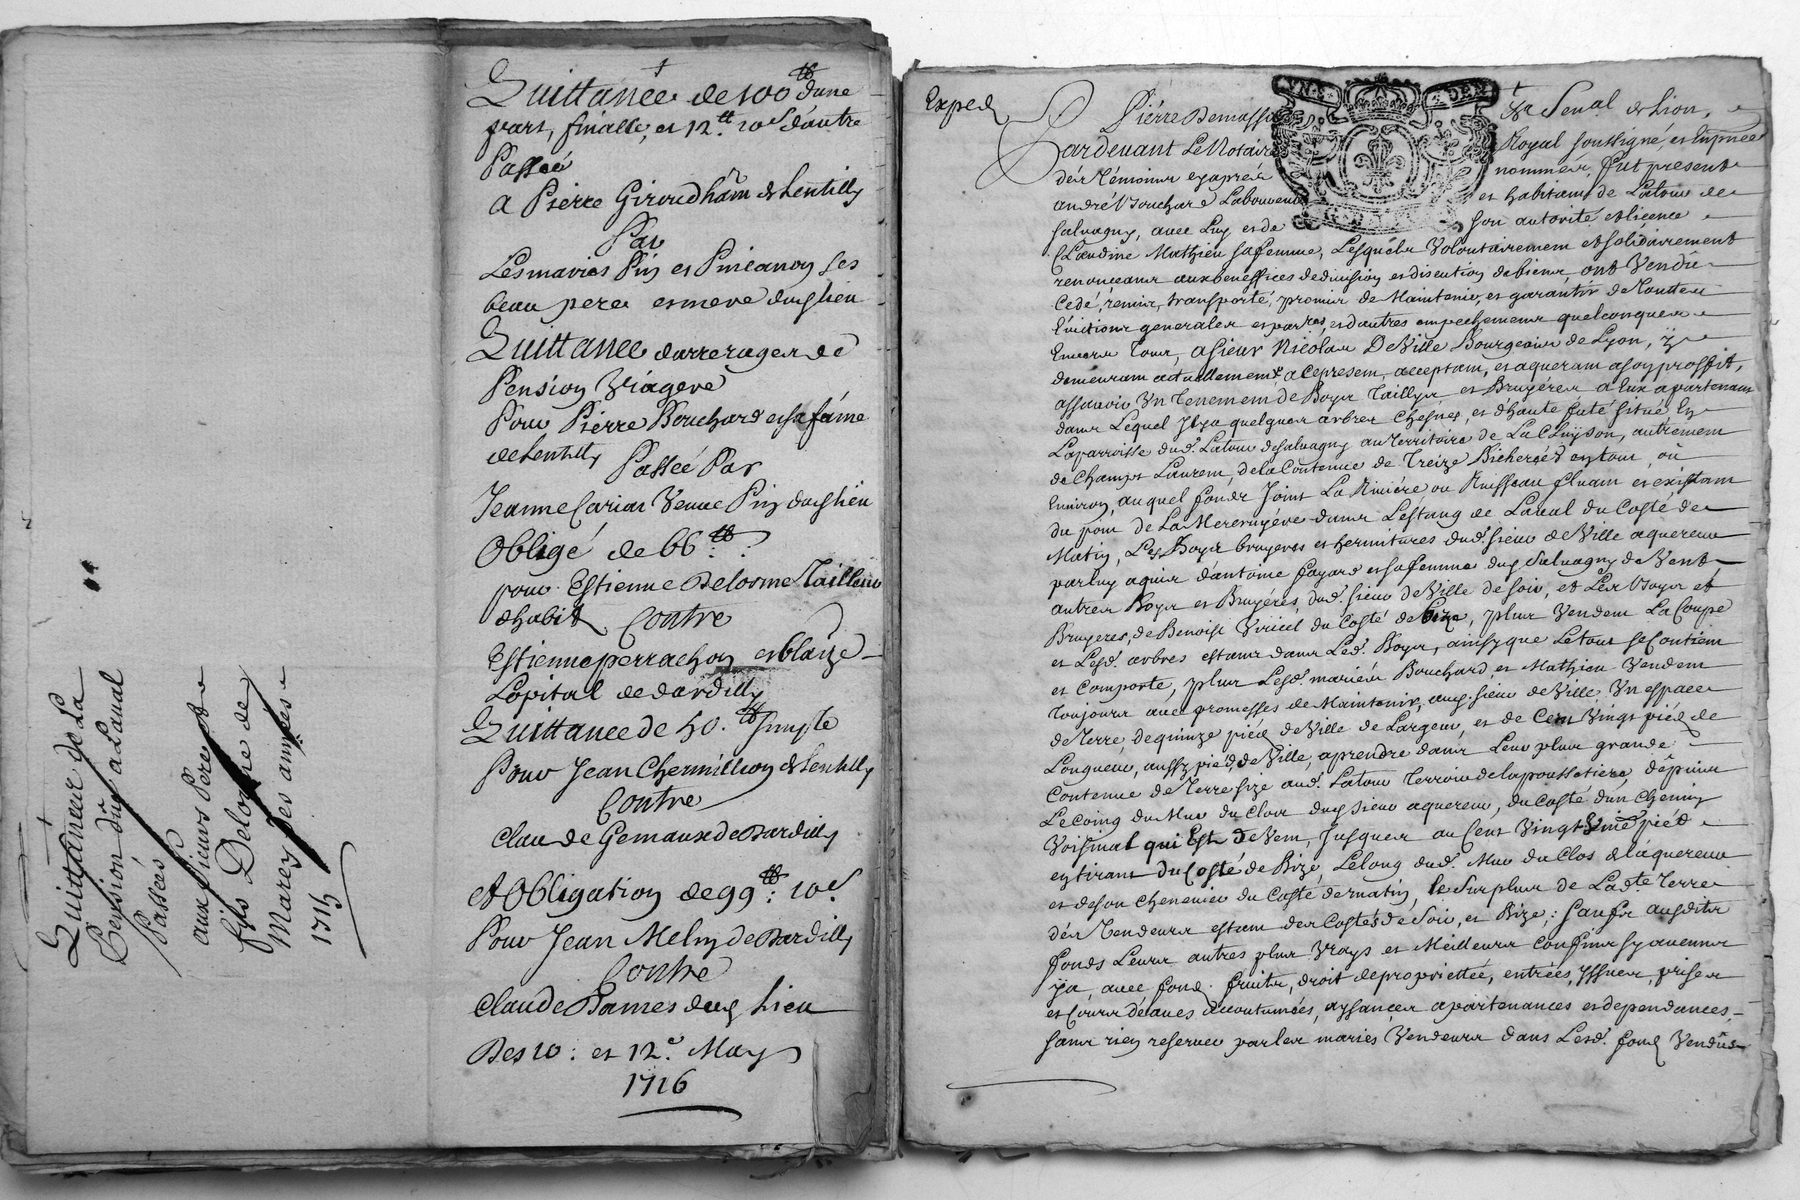 Quittance de la
Pension düe a Laval
Passées
aux sieurs Pere et
fils Delorme de
Marcy des années
1715
Quittance de 100 tt dune
part, finalle, et 12 tt 10 s d'autre
Passée
a Pierre Giroud hãm de Lentilly
Par
Les maries Pin et Pineanon ses
beau pere et mere dud lieu
Quittance darrerages de
Pension Viagere
Pour Pierre Bouchard et sa fame
de Lentilly Passée Par
Jeanne Carias Veuve Pin dud lieu
Obligé de 66 tt
pour Estienne Delorme Tailleur
dhabit Contre
Estienne perrachon et blaize
Lopital de dardilly
Quittance de 50 tt simple
Pour Jean Chermillion de Lentilly
Contre
Claude Gemaux de Dardilly
et Obligation de 99 tt 10 s
Pour Jean Melin de Dardilly
Contre
Claude Dames dud Lieu
Des 10 et 12e May
1716
Exped
Pierre Demasse
& Senal de Lion,
Pardevant Le Notaire Royal soussigné, et En presence
des Témoins cy apres nommés, fut present
andré Bouchard Laboureur et habitant de Latour de
salvagny, avec Luy et de son autorité et licence
Claudine Mathieu sa femme, Lesquels Volontairement et solidairement
renonceans aux beneffices de division et discution de biens ont Vendu
Cedé, remis, transporté, promis de Maintenir, et garantir de Touttes
Evictions generales et par res, et d'autres empechemens quelconques
Envers Tous, a sieur Nicolas DeVille Bourgeois de Lyon, y
demeurant actuellement a ce present, acceptant, et aquerant a son proffit,
assavoir Un Tenement de Boys Taillys et Bruyéres a Eux apartenant
dans Lequel Il y a quelques arbres Chesnes, et d'haute futé situé En
Laparroisse dud. Latour de Salvagny au Territoire de La Cluyson, autrement
de Champt Laurent, de la Contenue de Treize Bicherées en tout, ou
Environ, auquel fonds Joint La Rivière ou Ruisseau fluant et existant
du pont de La dans Lestang de Laval du Costé de
Matin, Les Boys bruyeres et hermitures dud. sieur de Ville aquereur
par luy aquis d'antoine fayard et sa femme dud Salvagny de Vent
autres Boys et Bruyéres, dud. sieur de Ville de soir, et Les Boys et
Bruyeres, de Benoist Vriicel du Costé de bize, plus Vendent La Coupe
et Lesd. arbres estans dans Led. Boys, ainsy que Le tout se Contient
et Comporte, plus Lesd. mariés Bouchard, et Mathieu Vendent
Toujours avec promesses de Maintenir, aud. sieur de Ville Un espace
de Terre, de quinze pied de Ville de Largeur, et de Cent Vingt pied de
Longueur, aussy pied de Ville, a prendre dans Leur plus grande
Contenue de Terre size aud. Latour Terroir de la poussetiere, dépuis
Le Coing du Mur du Clos dud sieur aquereur, du Costé d'un Chemin
Voisinal qui Est de Vent, Jusques au Cent Vingt pied
en tirant du Costé de Bize, Le long dud. Mur du Clos de l'aquereur
et de son Cheneviers du Costé de matin, le Surplus de Ladte Terre
des Vendeurs estant des Costés de Soir, et Bize; Saufs ausdits
fonds Leurs autres plus Vrays et Meilleurs Confins sy aucuns
y a, avec fond. fruits, droit de proprietée, entrées, yssues, prises
et Cours déaues accoutumées, aysances apartenances et dependances,
sans rien reserver par les mariés Vendeurs dans Lesd. fond Vendûs